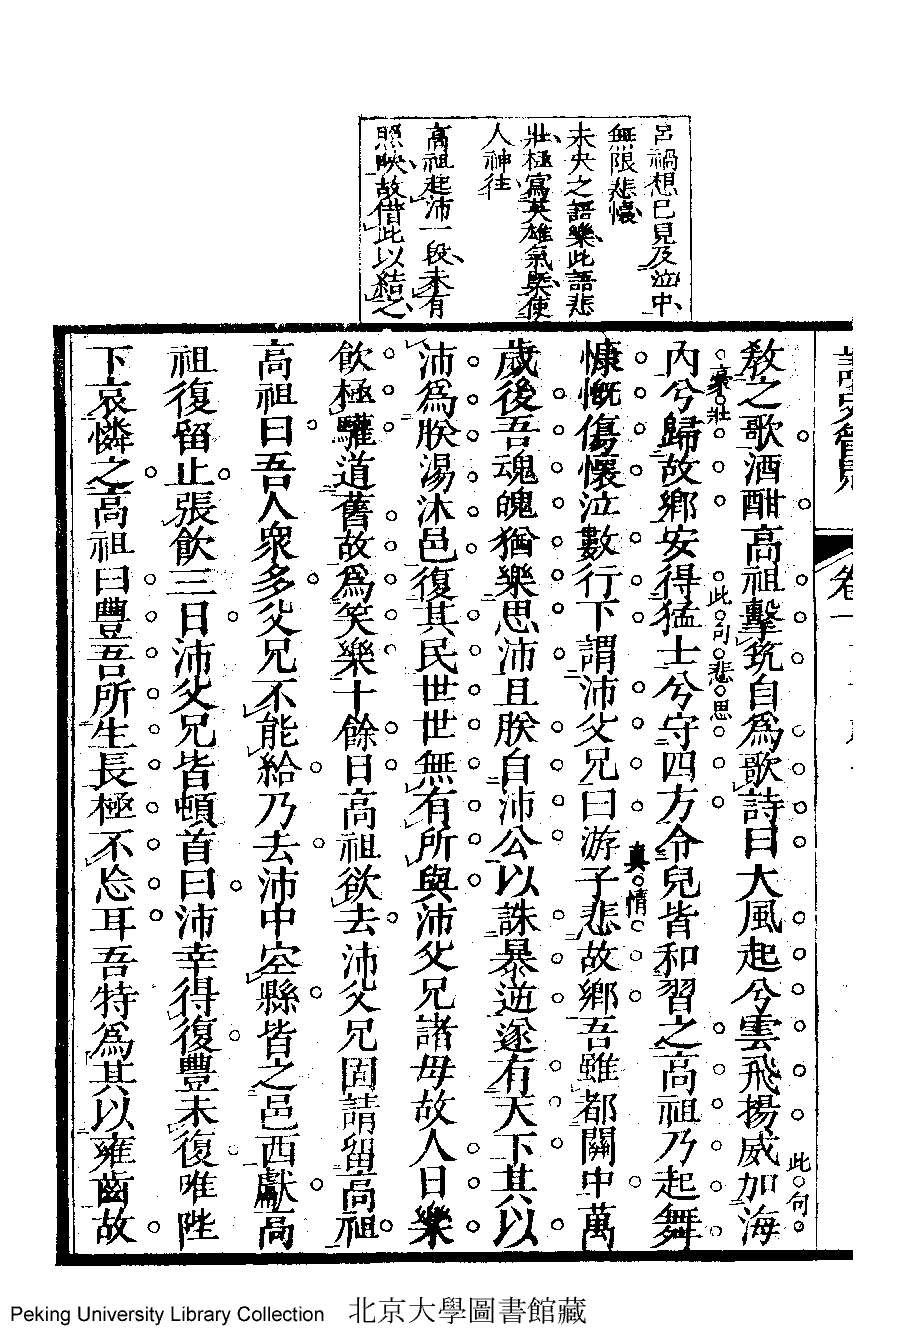 呂禍想已見及泣中
無限悲懷
未央之語樂此語悲
壯極寫英雄氣槩使
人神往
高祖起沛一段未有
照映故借此以結之
教之歌酒酣高祖擊筑自為歌詩曰大風起兮雲飛揚威加海
此句
豪壯
內兮歸故鄉安得猛士兮守四方令兒皆和習之高祖乃起舞
此句悲思
慷慨傷懷泣數行下謂沛父兄曰游子悲故鄉吾雖都關中萬
真情
歲後吾魂魄猶樂思沛且朕自沛公以誅暴逆遂有天下其以
沛為朕湯沐邑復其民世世無有所與沛父兄諸母故人日樂
飲極驩道舊故為笑樂十餘日高祖欲去沛父兄固請留高祖
高祖曰吾人衆多父兄不能給乃去沛中空縣皆之邑西獻高
祖復留止張飲三日沛父兄皆頓首曰沛幸得復豐未復唯陛
下哀憐之高祖曰豐吾所生長極不忘耳吾特為其以雍齒故
Peking University Library Collection 北京大學圖書館藏